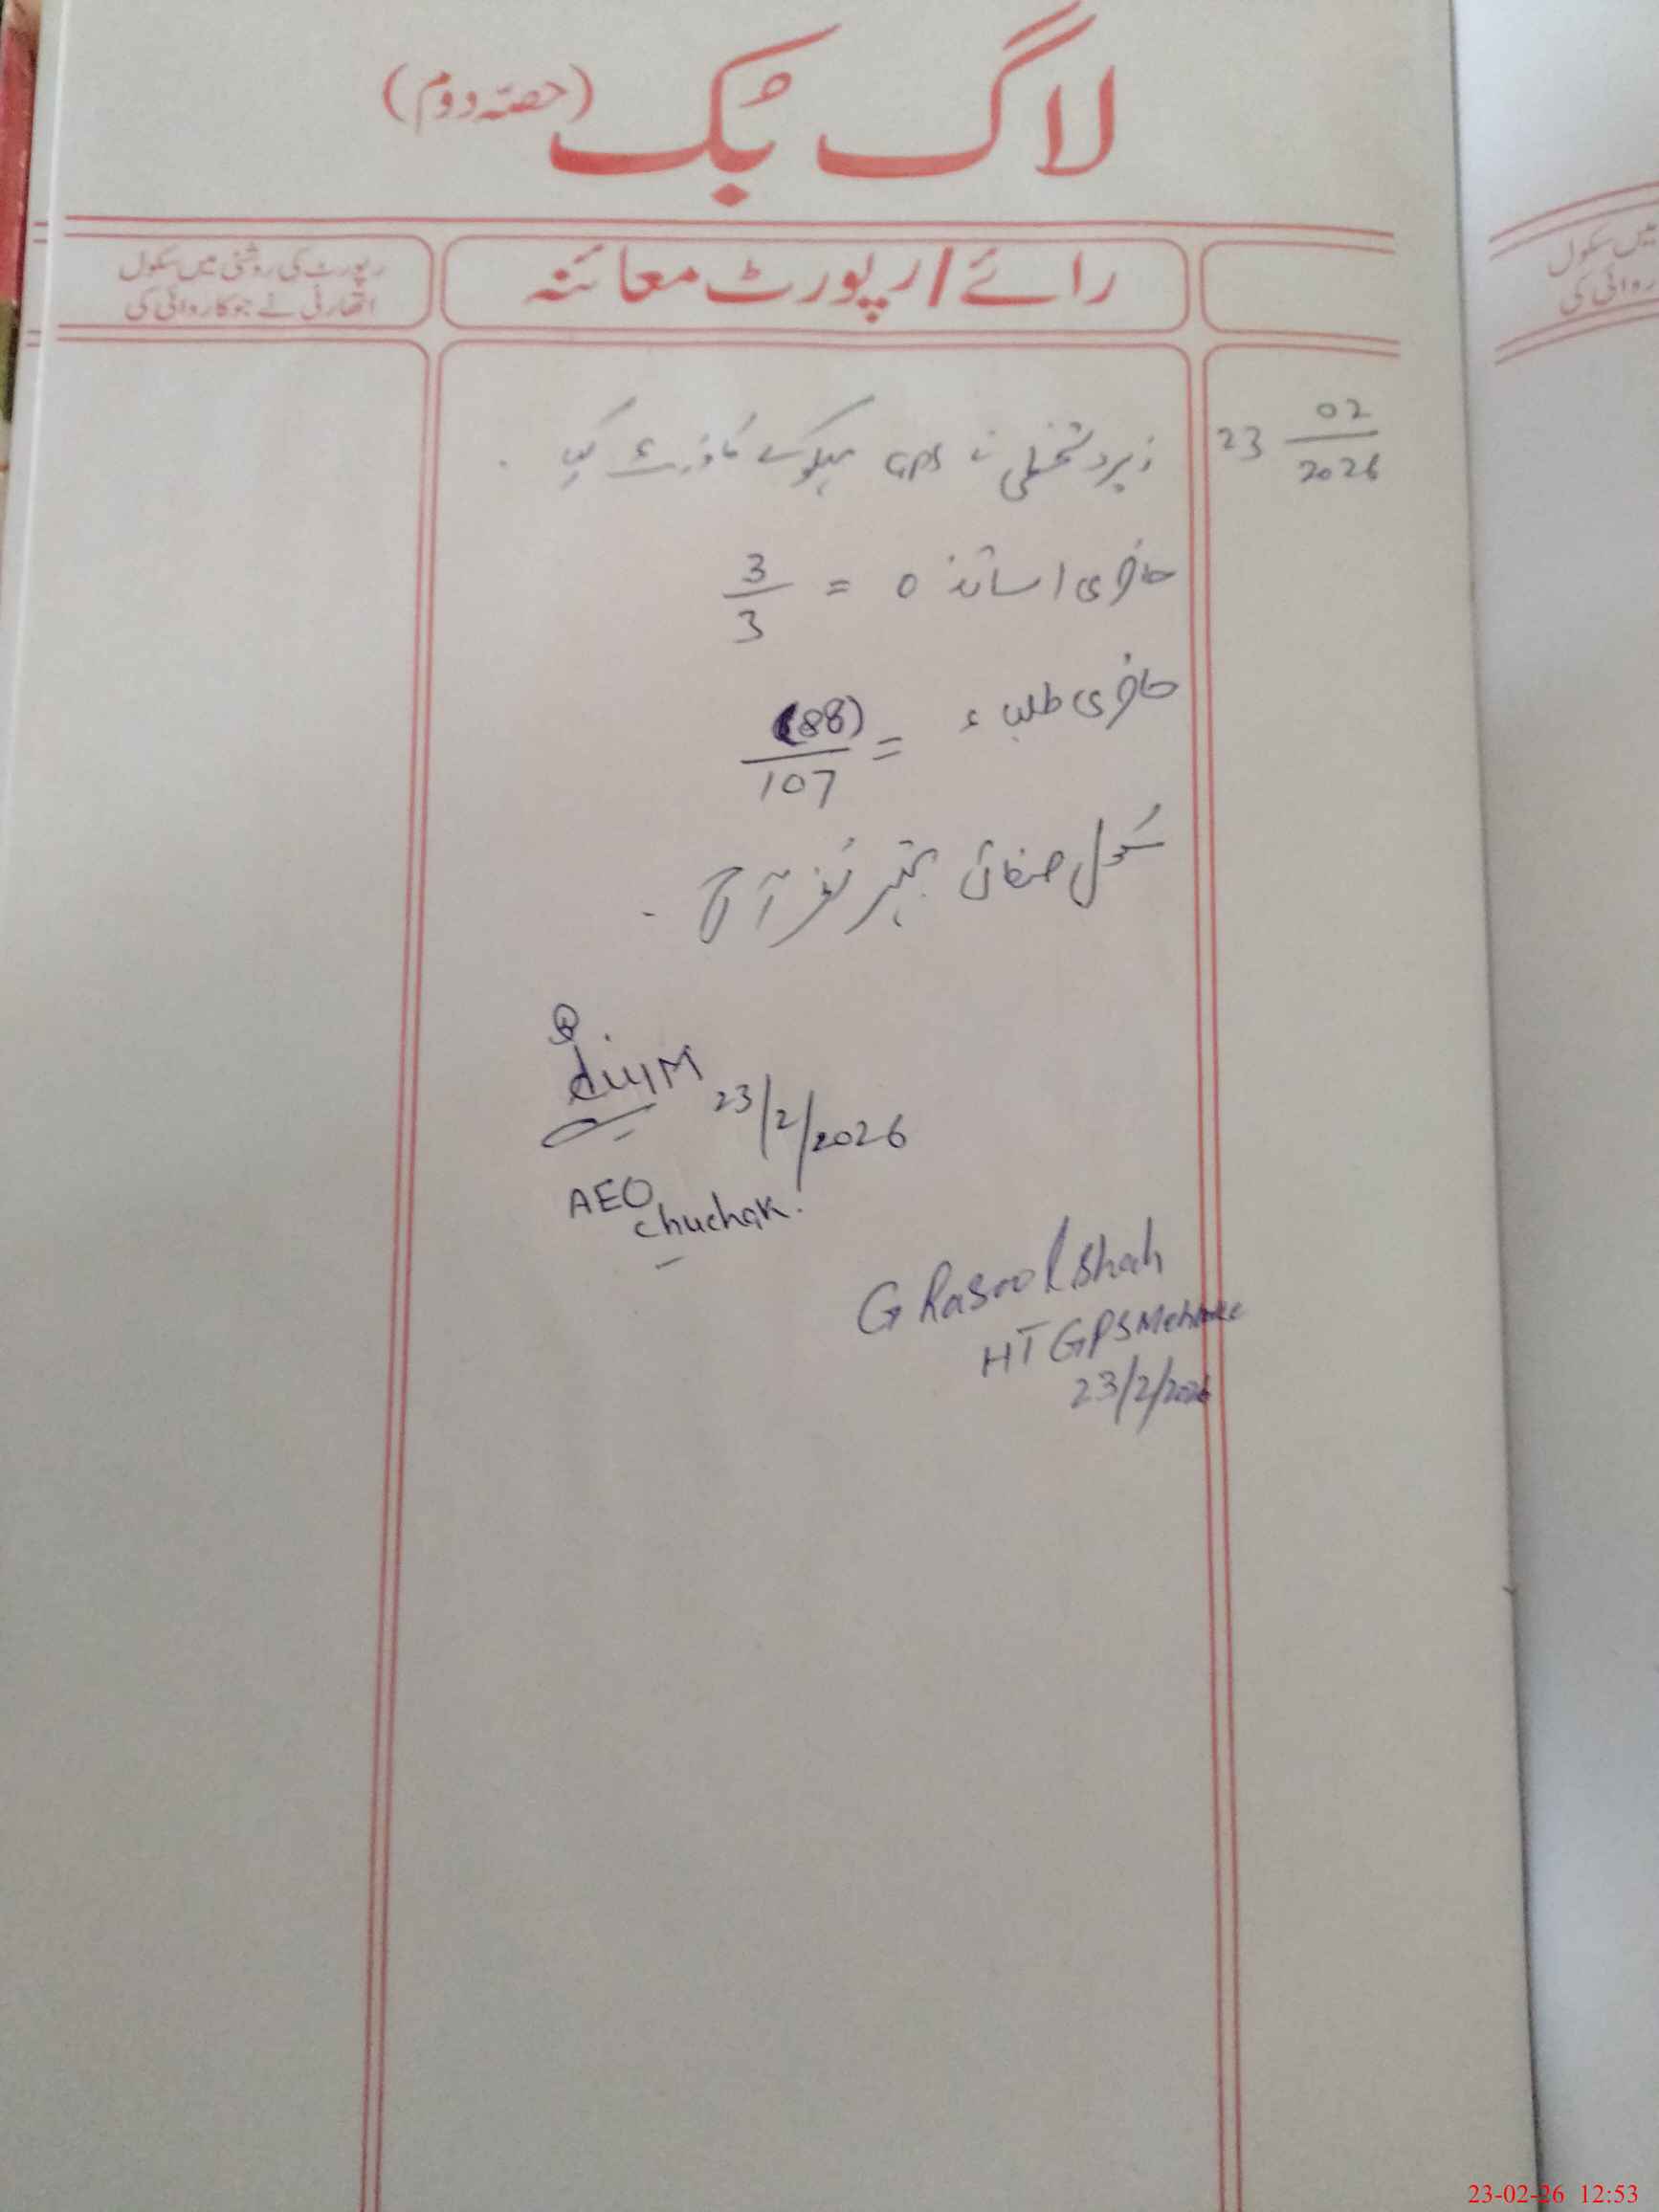 لاگ بُک (حصّہ دوم)
رائے/رپورٹ معائنہ
رپورٹ کی روشنی میں سکول
اتھارٹی نے جو کاروائی کی
23 02/2026
زیر دستخطی نے GPS کا وزٹ کیا۔
حاضری اساتذہ = 3/3
حاضری طلباء = (88)/107
سکول صفائی بہتر نظر آئی۔
23/2/2026
AEO
chuchak.
G Rasool Shah
HT GPS Mehloke
23/2/2026
میں سکول
روائی کی
23-02-26 12:53